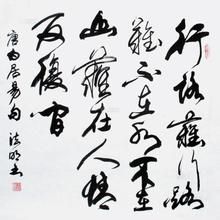 行路難行路
難不在水不在
山在人情
反覆間
唐白居易句 法明书